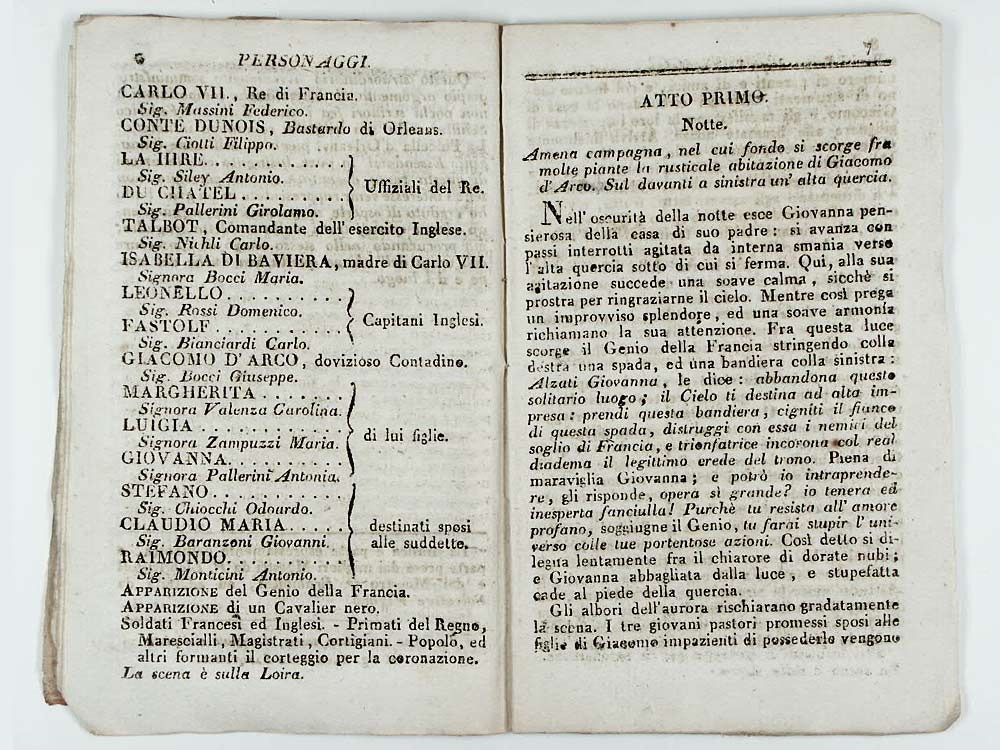 6
PERSONAGGI.
CARLO VII., Re di Francia.
Sig. Massini Federico.
CONTE DUNOIS, Bastardo di Orleans.
Sig. Ciotti Filippo.
LA HIRE...........
Sig. Siley Antonio.
DU CHATEL.........
Sig. Pallerini Girolamo.
Uffiziali del Re.
TALBOT, Comandante dell'esercito Inglese.
Sig. Nichli Carlo.
ISABELLA DI BAVIERA, madre di Carlo VII.
Signora Bocci Maria.
LEONELLO..........
Sig. Rossi Domenico.
FASTOLF...........
Sig. Bianciardi Carlo.
Capitani Inglesi.
GIACOMO D'ARCO, dovizioso Contadino.
Sig. Bocci Giuseppe.
MARGHERITA.......
Signora Valenza Carolina.
LUIGIA..........
Signora Zampuzzi Maria.
GIOVANNA..........
Signora Pallerini Antonia.
di lui figlie.
STEFANO...........
Sig. Chiocchi Odoardo.
CLAUDIO MARIA.....
Sig. Baranzoni Giovanni.
RAIMONDO..........
Sig. Monticini Antonio.
destinati sposi
alle suddette.
APPARIZIONE del Genio della Francia.
APPARIZIONE di un Cavalier nero.
Soldati Francesi ed Inglesi. - Primati del Regno,
Marescialli, Magistrati, Cortigiani. - Popolo, ed
altri formanti il corteggio per la coronazione.
La scena è sulla Loira.
7
ATTO PRIMO.
Notte.
Amena campagna, nel cui fondo si scorge fra
molte piante la rusticale abitazione di Giacomo
d'Arco. Sul davanti a sinistra un' alta quercia.
Nell' oscurità della notte esce Giovanna pen-
sierosa della casa di suo padre: si avanza con
passi interrotti agitata da interna smania verso
l'alta quercia sotto di cui si ferma. Qui, alla sua
agitazione succede una soave calma, sicchè si
prostra per ringraziarne il cielo. Mentre così prega
un improvviso splendore, ed una soave armonia
richiamano la sua attenzione. Fra questa luce
scorge il Genio della Francia stringendo colla
destra una spada, ed una bandiera colla sinistra:
Alzati Giovanna, le dice: abbandona questo
solitario luogo; il Cielo ti destina ad alta im-
presa: prendi questa bandiera, cigniti il fianco
di questa spada, distruggi con essa i nemici del
soglio di Francia, e trionfatrice incorona col real
diadema il legittimo erede del trono. Piena di
maraviglia Giovanna; e potrò io intraprende-
re, gli risponde, opera sì grande? io tenera ed
inesperta fanciulla! Purchè tu resista all' amore
profano, soggiugne il Genio, tu farai stupir l' uni-
verso colle tue portentose azioni. Così detto si di-
legua lentamente fra il chiarore di dorate nubi;
e Giovanna abbagliata dalla luce, e stupefatta
cade al piede della quercia.
Gli albori dell'aurora rischiarano gradatamente
la scena. I tre giovani pastori promessi sposi alle
figlie di Giacomo impazienti di possederle vengono